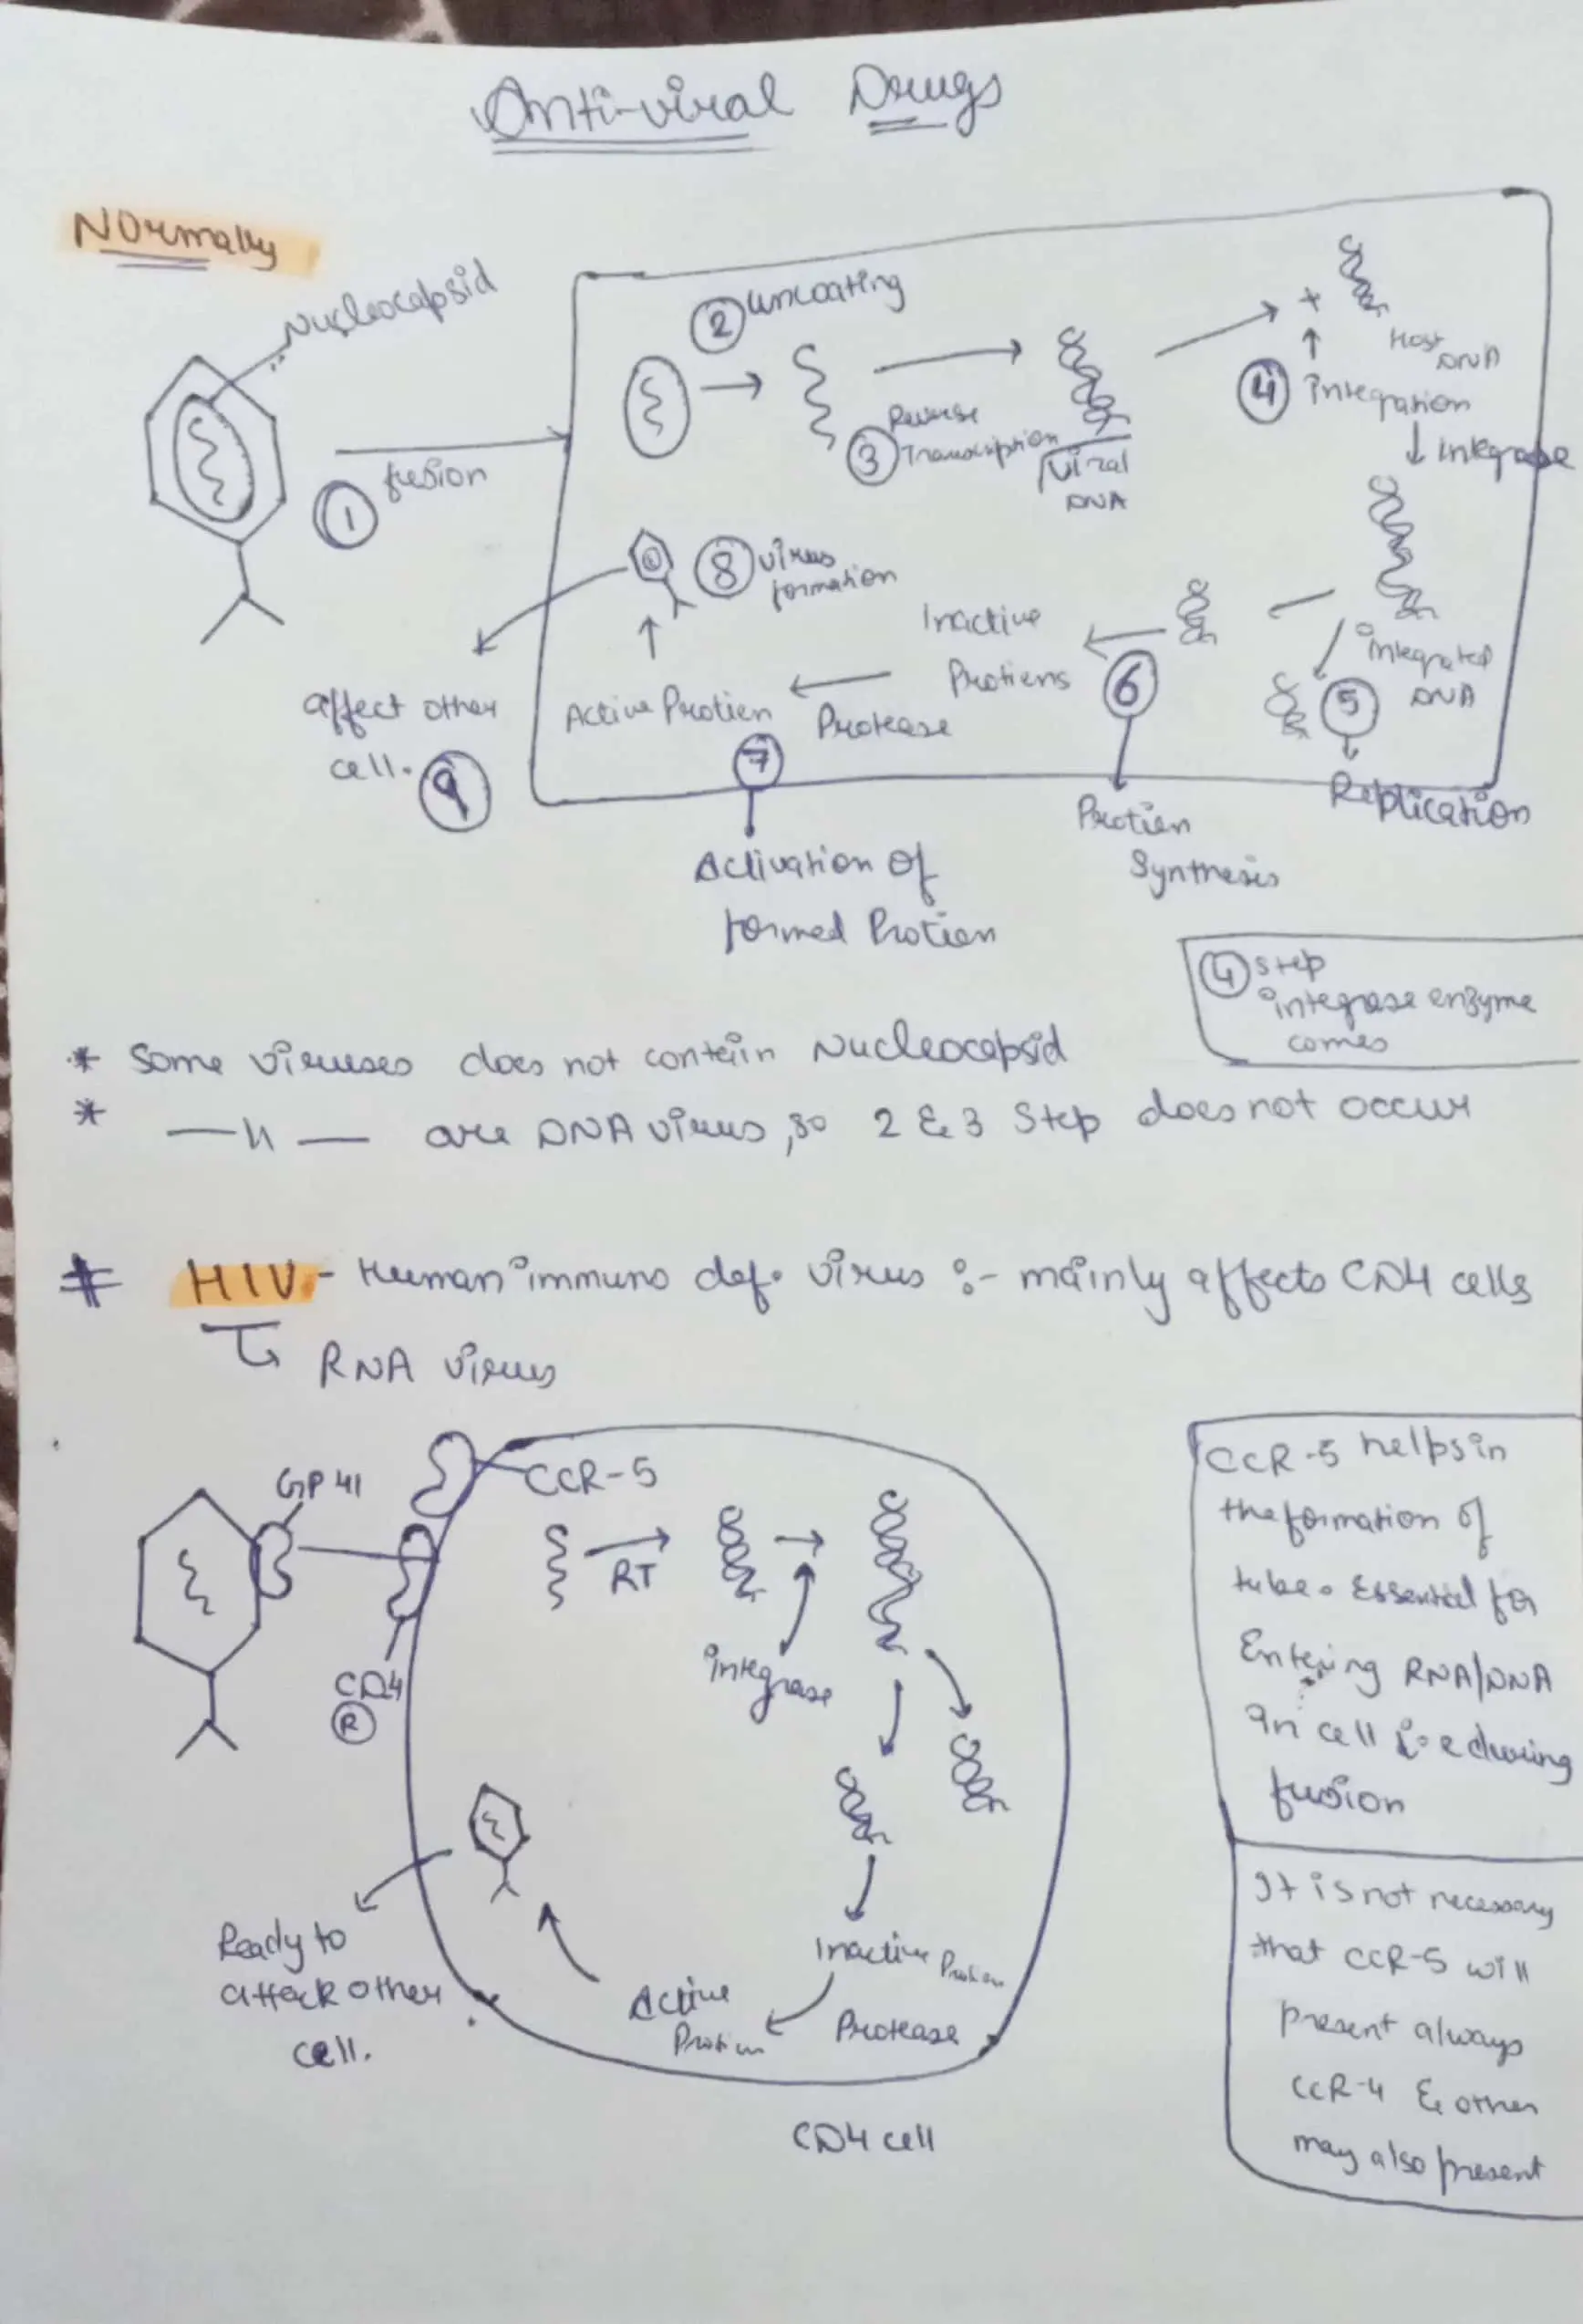 Anti-viral Drugs
Normally
Nucleocapsid
1 fusion
2 uncoating
3 Reverse
Transcription
Viral
DNA
+
Host
DNA
4 Integration
Integrase
Integrated
DNA
5
Replication
6
Protien
Synthesis
Inactive
Protiens
Protease
Active Protien
7
Activation of
formed Protien
8 virus
formation
affect other
cell. 9
4 step
integrase enzyme
comes
* Some viruses does not contain Nucleocapsid
* —11— are DNA virus, so 2 & 3 Step does not occur
# HIV - Human immuno def. virus :- mainly affects CD4 cells
RNA virus
GP 41
CCR-5
CD4
R
RT
integrase
Inactive Protien
Protease
Active
Protien
Ready to
attack other
cell.
CD4 cell
CCR-5 helps in
the formation of
tube. Essential for
Entering RNA/DNA
in cell i.e during
fusion
It is not necessary
that CCR-5 will
present always
CCR-4 & other
may also present